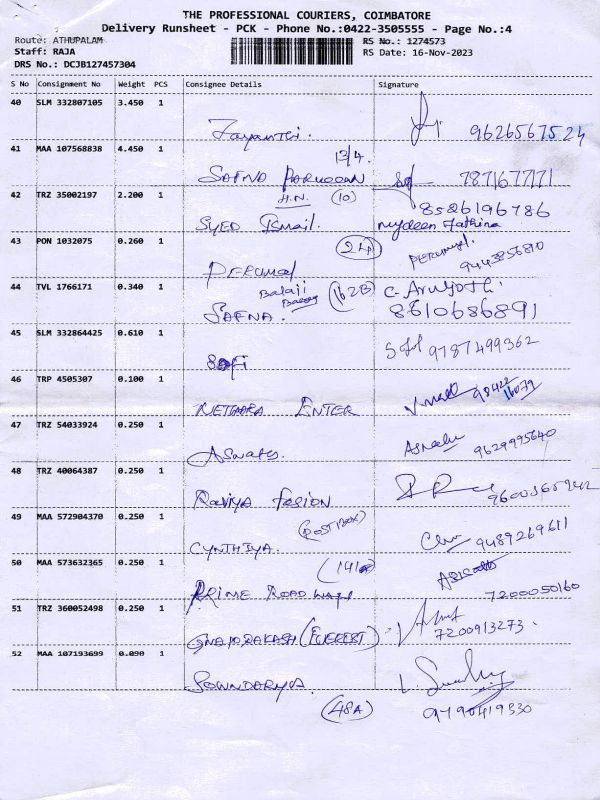 THE PROFESSIONAL COURIERS, COIMBATORE
Delivery Runsheet - PCK - Phone No.:0422-3505555 - Page No.:4
Route: ATHUPALAM
RS No.: 1274573
Staff: RAJA
RS Date: 16-Nov-2023
DRS No.: DCJB127457304
S No Consignment No Weight PCS Consignee Details Signature
40 SLM 332807105 3.450 1
Jayanthi. 9626567524
13/4.
41 MAA 107568838 4.450 1
SAFNA 7871677171
H.N. (10)
42 TRZ 35002197 2.200 1 8526196786
SYED Ismail. mydeen Fathima
43 PON 1032075 0.260 1
PERUMAL PERUMAL 9443856810
44 TVL 1766171 0.340 1
Balaji (162B) C. Arul
SAFNA. 8610686891
45 SLM 332864425 0.610 1
9787499362
46 TRP 4505307 0.100 1
ENTER
47 TRZ 54033924 0.250 1
9629995640
48 TRZ 40064387 0.250 1
(POST BOX)
49 MAA 572904370 0.250 1
CYNTHIYA. 9489269611
50 MAA 573632365 0.250 1
PRIME ROAD WAYS 7200050160
51 TRZ 360052498 0.250 1
GNAPRAKASH (EVEREST) 7200913273.
52 MAA 107193699 0.090 1
SOWNDARYA
(48A) 9790419330